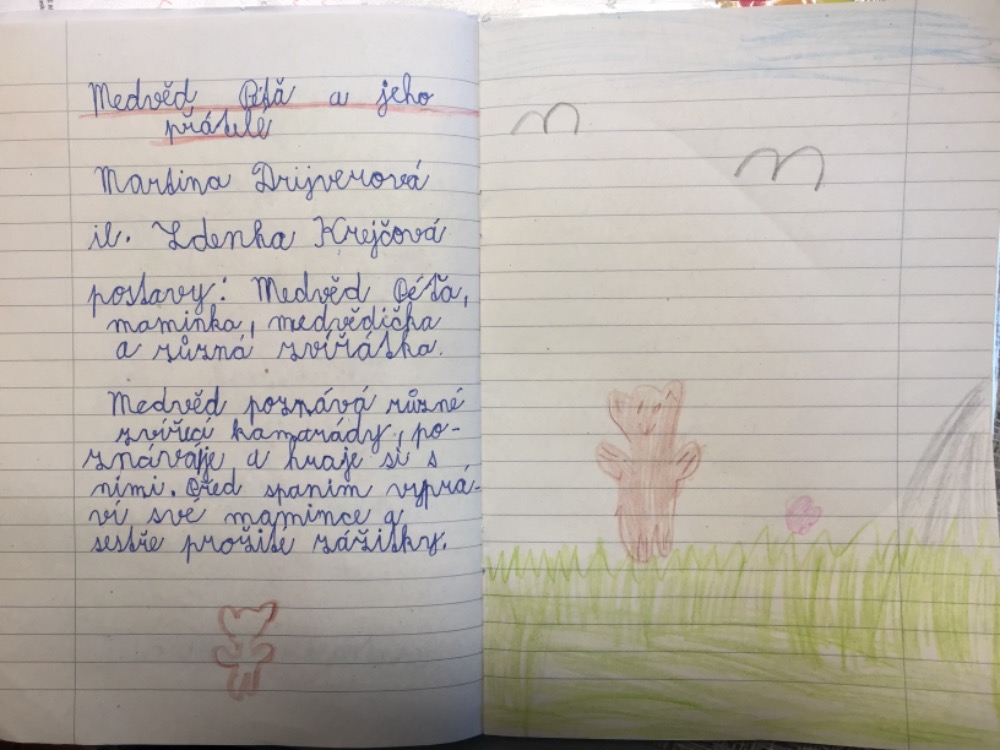 Medvěd Péťa a jeho
přátelé
Martina Drijverová
il. Zdenka Krejčová
postavy: Medvěd Péťa,
maminka, medvědička
a různá zvířátka.
Medvěd poznává různé
zvířecí kamarády, po-
znávája a hraje si s
nimi. Před spaním vyprá-
ví své mamince a
sestře prožité zážitky.